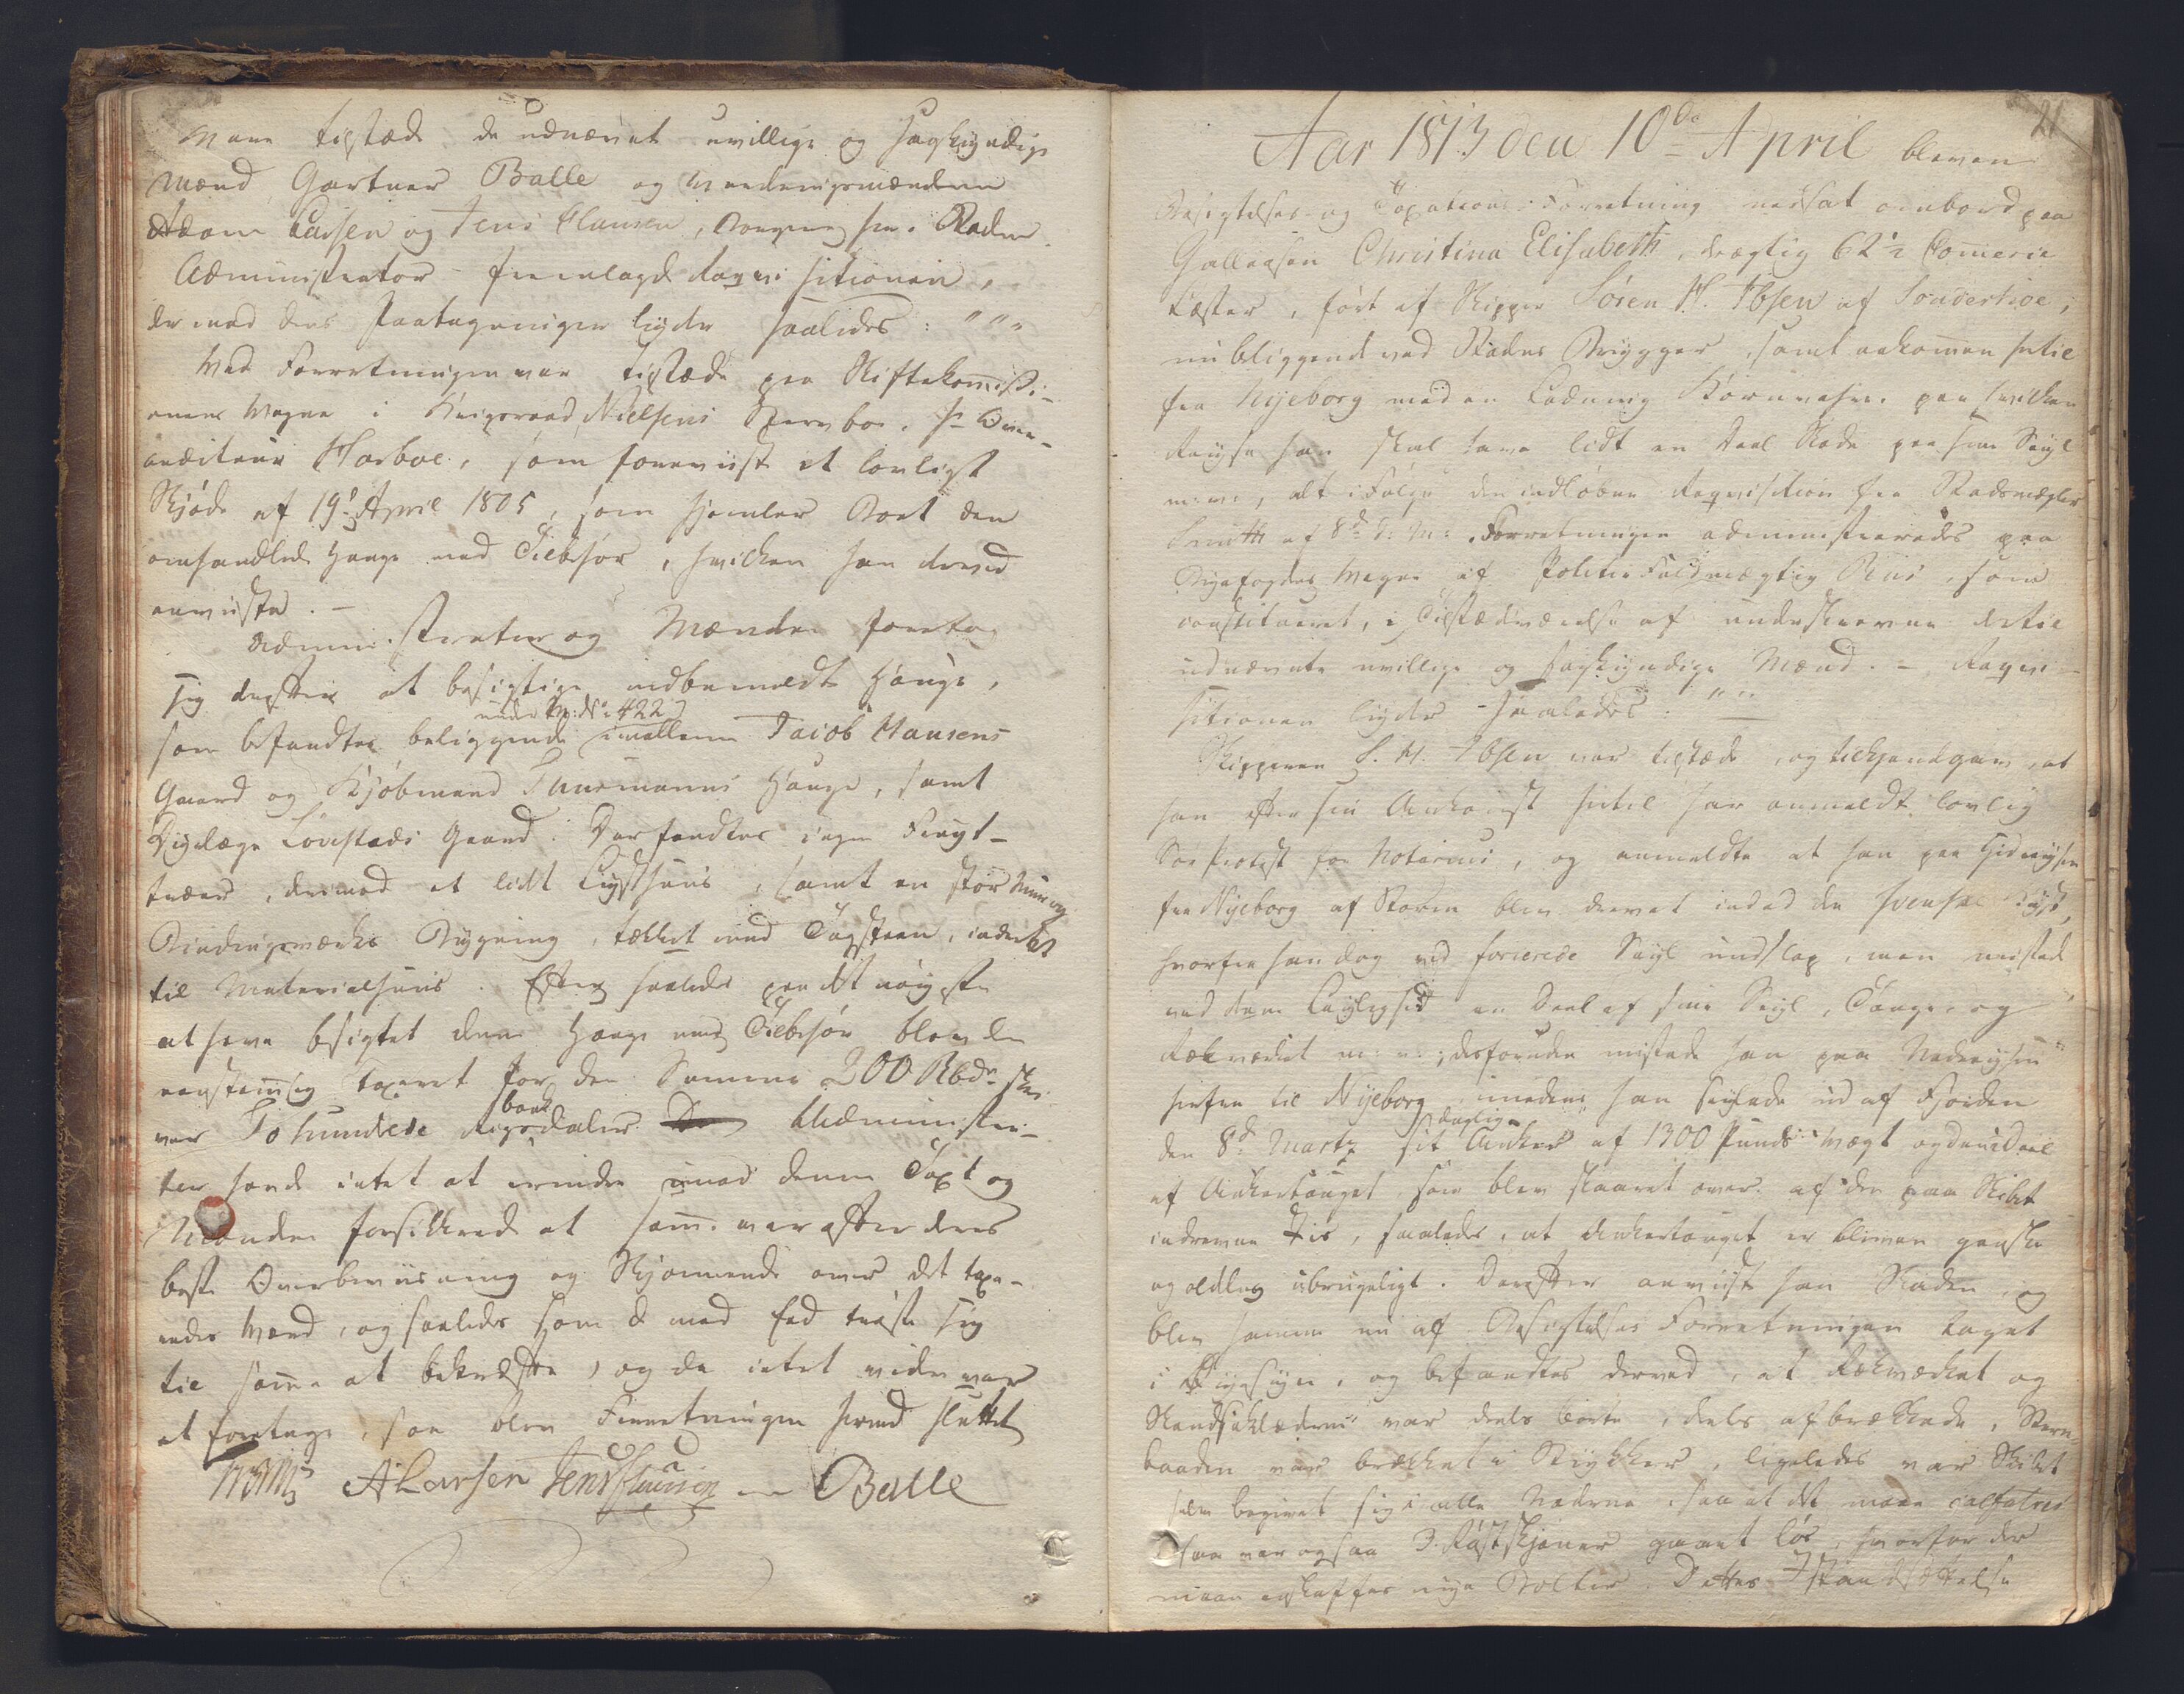 Mane tilstæde de udnævnte uvillige og sagkyndige
Mænd, Gartner Balle og Vurderingsmændene
Adam Larsen og Jens Clausen, Borgere her i Staden.
Administrator fremlagde Requisitionen,
der med dens Paategninger lyder saaledes: """
Ved Forretningen var tilstæde paa Skiftekommissi-
onens Vegne i Krigsraad Nielsens Sterboe, Hr Over-
auditeur Harboe, som foreviiste et lovligt
Skjøde af 19de April 1805, som hjemler Boet den
omhandlede Hauge med Tilbehør, hvilken han derved
anviiste. -
Administrator og Mændene foretog
sig derefter at besigtige velbemeldte Hauge,
under Mp: No: 422
som befandtes beliggende imellem Jacob Hansens
Gaard og Kjøbmand Thuemanns Hauge, samt
Dyrlæge Lovstads Gaard. Der fandtes ingen Frugt-
træer, derimod et lidt Lysthuus, samt en stor Muur og
Bindingsværks Bygning, tækket med Tagsteen, indrettet
til Materialhuus. Efter saaledes paa det nøyeste
at have besigtet denne Hauge med Tilbehør blev den
eenstemmig taxeret for den Summa 200 Rbdr. skri-
bank
ver To hundrede Rigsdaler Administra-
tor havde intet at erindre imod denne Taxt og
Mændene forsikkrede at samme var efter deres
beste Overbeviisning og Skjønnende over det taxe-
redes Værd, og saaledes som de med Eed trøste sig
til samme at bekræfte, og da intet videre var
at foretage, saa blev Forretningen hermed sluttet
A Larsen Jens Clausen Balle
21
Aar 1813 den 10de April bleven
Besigtelses og Taxations-Forretning udsat ombord paa
Galleasen Christina Elisabeth, drægtig 62½ Commerce
Læster, ført af Skipper Søren H. Ibsen af Sønderhoe,
nu beliggende ved Stadens Brygger, samt ankommen hertil
fra Nyeborg med en Ladning Kornvahre, paa hvilken
Reyse han skal have lidt en Deel Skade paa sine Seyl
m: v:, alt i Følge den indløbne Requisition fra Stadsmægler
Smith af 8de d: M: Forretningen administreredes paa
Byefogdens Vegne af Politie Fuldmægtig Riis, som
constitueret, i Tilstædeværelse af underskrevne dertil
udnævnte uvillige og sagkyndige Mænd. - Requi-
sitionen lyder saaledes: """
Skipperen S. H. Ibsen var tilstæde, og tilkjendegav, at
han efter sin Ankomst hertil har anmeldt lovlig
Søe Protest for Notarius, og anmeldte at han paa Hidreysen
fra Nyeborg af Storm blev drevet indad den svenske Kyst,
hvorfra han dog ved forcerede Seyl undslap, men mistede
ved denne Leylighed en Deel af sine Seyl, Tauge og
Rækværket m: v:; desforuden mistede han paa Nedreysen
herfra til Nyeborg, imedens han seylede ud af Fjorden
daglige
den 8de Martz sit Anker af 1300 Punds Vægt og den Deel
af Ankertouget, som blev skaaret over af den paa Skibet
inddrevne Iis, saaledes, at Ankertouget er bleven ganske
og aldeles ubrugeligt. Derefter anviiste han Skaden, og
blev samme nu af Besigtelses Forretningen taget
i Øyesyn, og befandtes derved, at Rækværket og
Skandseklæderne var deels borte, deels afbrækkede, Stor-
baaden var brækket i Stykker, ligeledes var Skibet
selv begivet sig i alle Naderne, saa at det maae calfatres
saa var ogsaa 3. Røstskjøner gaaet løs, hvorfor der
maae anskaffes nye Bolter. Dettes Istandsættelse